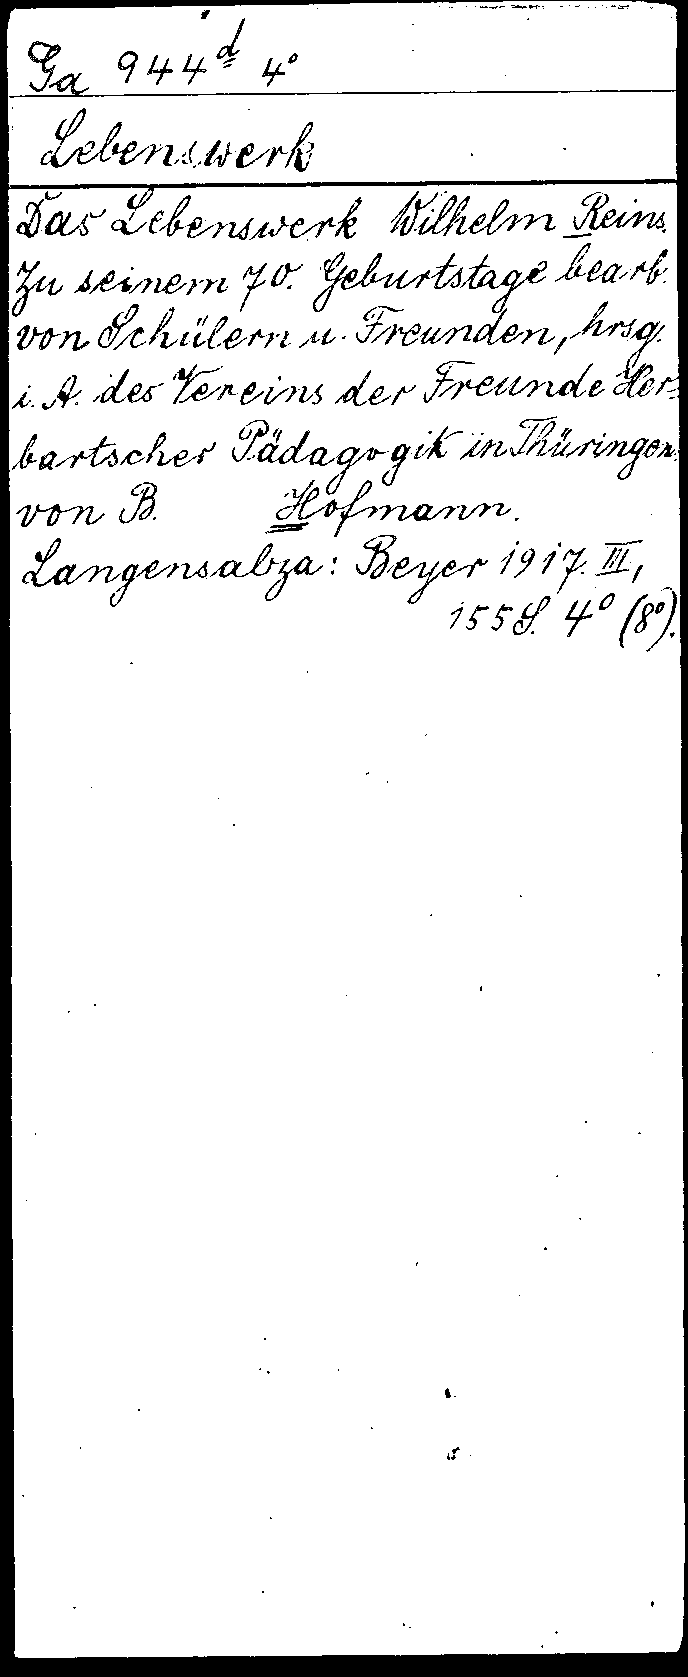 Ga 944ᵈ 4°
Lebenswerk
Das Lebenswerk Wilhelm Reins.
Zu seinem 70. Geburtstage bearb.
von Schülern u. Freunden, hrsg.
i. A. des Vereins der Freunde Her-
bartscher Pädagogik in Thüringen
von B. Hofmann.
Langensalza: Beyer 1917. III,
155 S. 4° (8°).